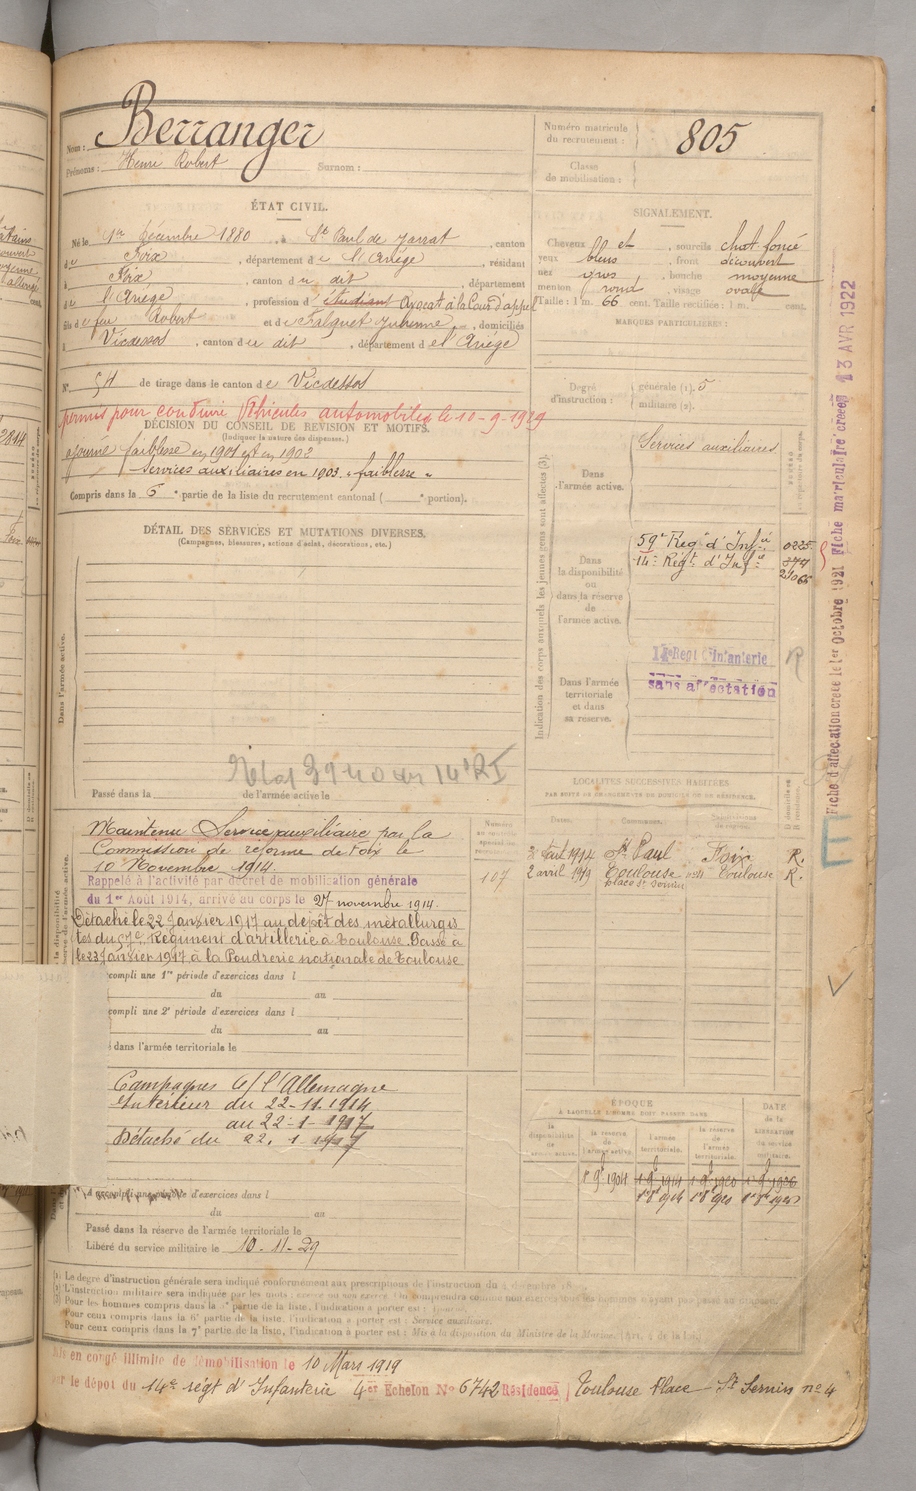 Nom : Berranger
Prénoms : Henri Robert Surnom :
Numéro matricule du recrutement : 805
Classe de mobilisation :
ÉTAT CIVIL.
Né le 1er décembre 1880, à St Paul de Jarrat, canton
de Foix, département de l'Ariège, résidant
à Foix, canton du dit, département
de l'Ariège, profession d'étudiant Avocat à la Cour d'appel
fils de feu Robert et de Falguet Jubienne, domiciliés
à Vicdessos, canton du dit, département de l'Ariège
SIGNALEMENT.
Cheveux et sourcils chat. foncé
yeux bleus, front découvert
nez gros, bouche moyenne
menton rond, visage ovale
Taille : 1 m. 66 cent. Taille rectifiée : 1 m. cent.
MARQUES PARTICULIÈRES :
N° 54 de tirage dans le canton de Vicdessos
Degré d'instruction : générale (1). 5
militaire (2).
permis pour conduire Véhicules automobiles le 10-9-1919
DÉCISION DU CONSEIL DE REVISION ET MOTIFS.
(Indiquer la nature des dispenses.)
ajourné faiblesse en 1901 et en 1902
Services auxiliaires en 1903 "faiblesse"
Compris dans la 6e partie de la liste du recrutement cantonal ( e portion).
DÉTAIL DES SERVICES ET MUTATIONS DIVERSES.
(Campagnes, blessures, actions d'éclat, décorations, etc.)
Dans l'armée active.
Passé dans la de l'armée active le
Indication des corps auxquels les jeunes gens sont affectés (3).
Dans l'armée active.
Services auxiliaires
Dans la disponibilité ou dans la réserve de l'armée active.
59e Régt d'Infie
14e Régt d'Infie
Dans l'armée territoriale et dans sa réserve.
14e Regt d'Infanterie R
sans affectation
Fiche d'affectation créée le 1er Octobre 1921 Fiche matriculaire créée 13 AVR 1922
LOCALITÉS SUCCESSIVES HABITÉES
PAR SUITE DE CHANGEMENTS DE DOMICILE OU DE RÉSIDENCE.
Dates. Communes. Subdivisions de région.
1914 St Paul Foix R.
2 avril 1919 Toulouse Toulouse R.
place St Sernin
Maintenu Service auxiliaire par la
Commission de réforme de Foix le
10 Novembre 1914.
Rappelé à l'activité par décret de mobilisation générale
du 1er Août 1914, arrivé au corps le 27 novembre 1914.
Détaché le 22 Janvier 1917 au dépôt des métallurgis
tes du 57e Régiment d'artillerie à Toulouse. Passé à
le 23 Janvier 1917 à la Poudrerie nationale de Toulouse
107
compli une 1re période d'exercices dans l
du au
compli une 2e période d'exercices dans l
du au
dans l'armée territoriale le
Campagnes c/ l'Allemagne
Intérieur du 22-11-1914
au 22-1-1917
Détaché du 22. 1 1917
accompli une période d'exercices dans l
du au
Passé dans la réserve de l'armée territoriale le
Libéré du service militaire le 10-11-29
ÉPOQUE
À LAQUELLE L'HOMME DOIT PASSER DANS
la disponibilité de l'armée active. la réserve de l'armée active. l'armée territoriale. la réserve de l'armée territoriale.
DATE de la LIBÉRATION du service militaire.
1 9b 1904 1 9b 1914 1 9b 1920 1 9b 1926
(1) Le degré d'instruction générale sera indiqué conformément aux prescriptions de l'instruction du 4 décembre
(2) L'instruction militaire sera indiquée par les mots : exercé ou non exercé.
(3) Pour les hommes compris dans la partie de la liste, l'indication à porter est :
Pour ceux compris dans la 6e partie de la liste, l'indication à porter est : Service auxiliaire.
Pour ceux compris dans la 7e partie de la liste, l'indication à porter est : Mis à la disposition du Ministre de la Marine. (Art. 4 de la loi.)
Mis en congé illimité de démobilisation le 10 Mars 1919
par le dépôt du 14e régt d'Infanterie 4er Echelon No 6742 Résidence Toulouse Place St Sernin no 4